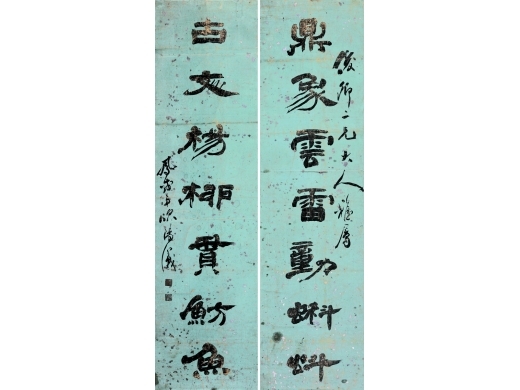 俊卿二兄大人雅屬
鼎象雲雷動蝌蚪
文楊柳貫魴魚